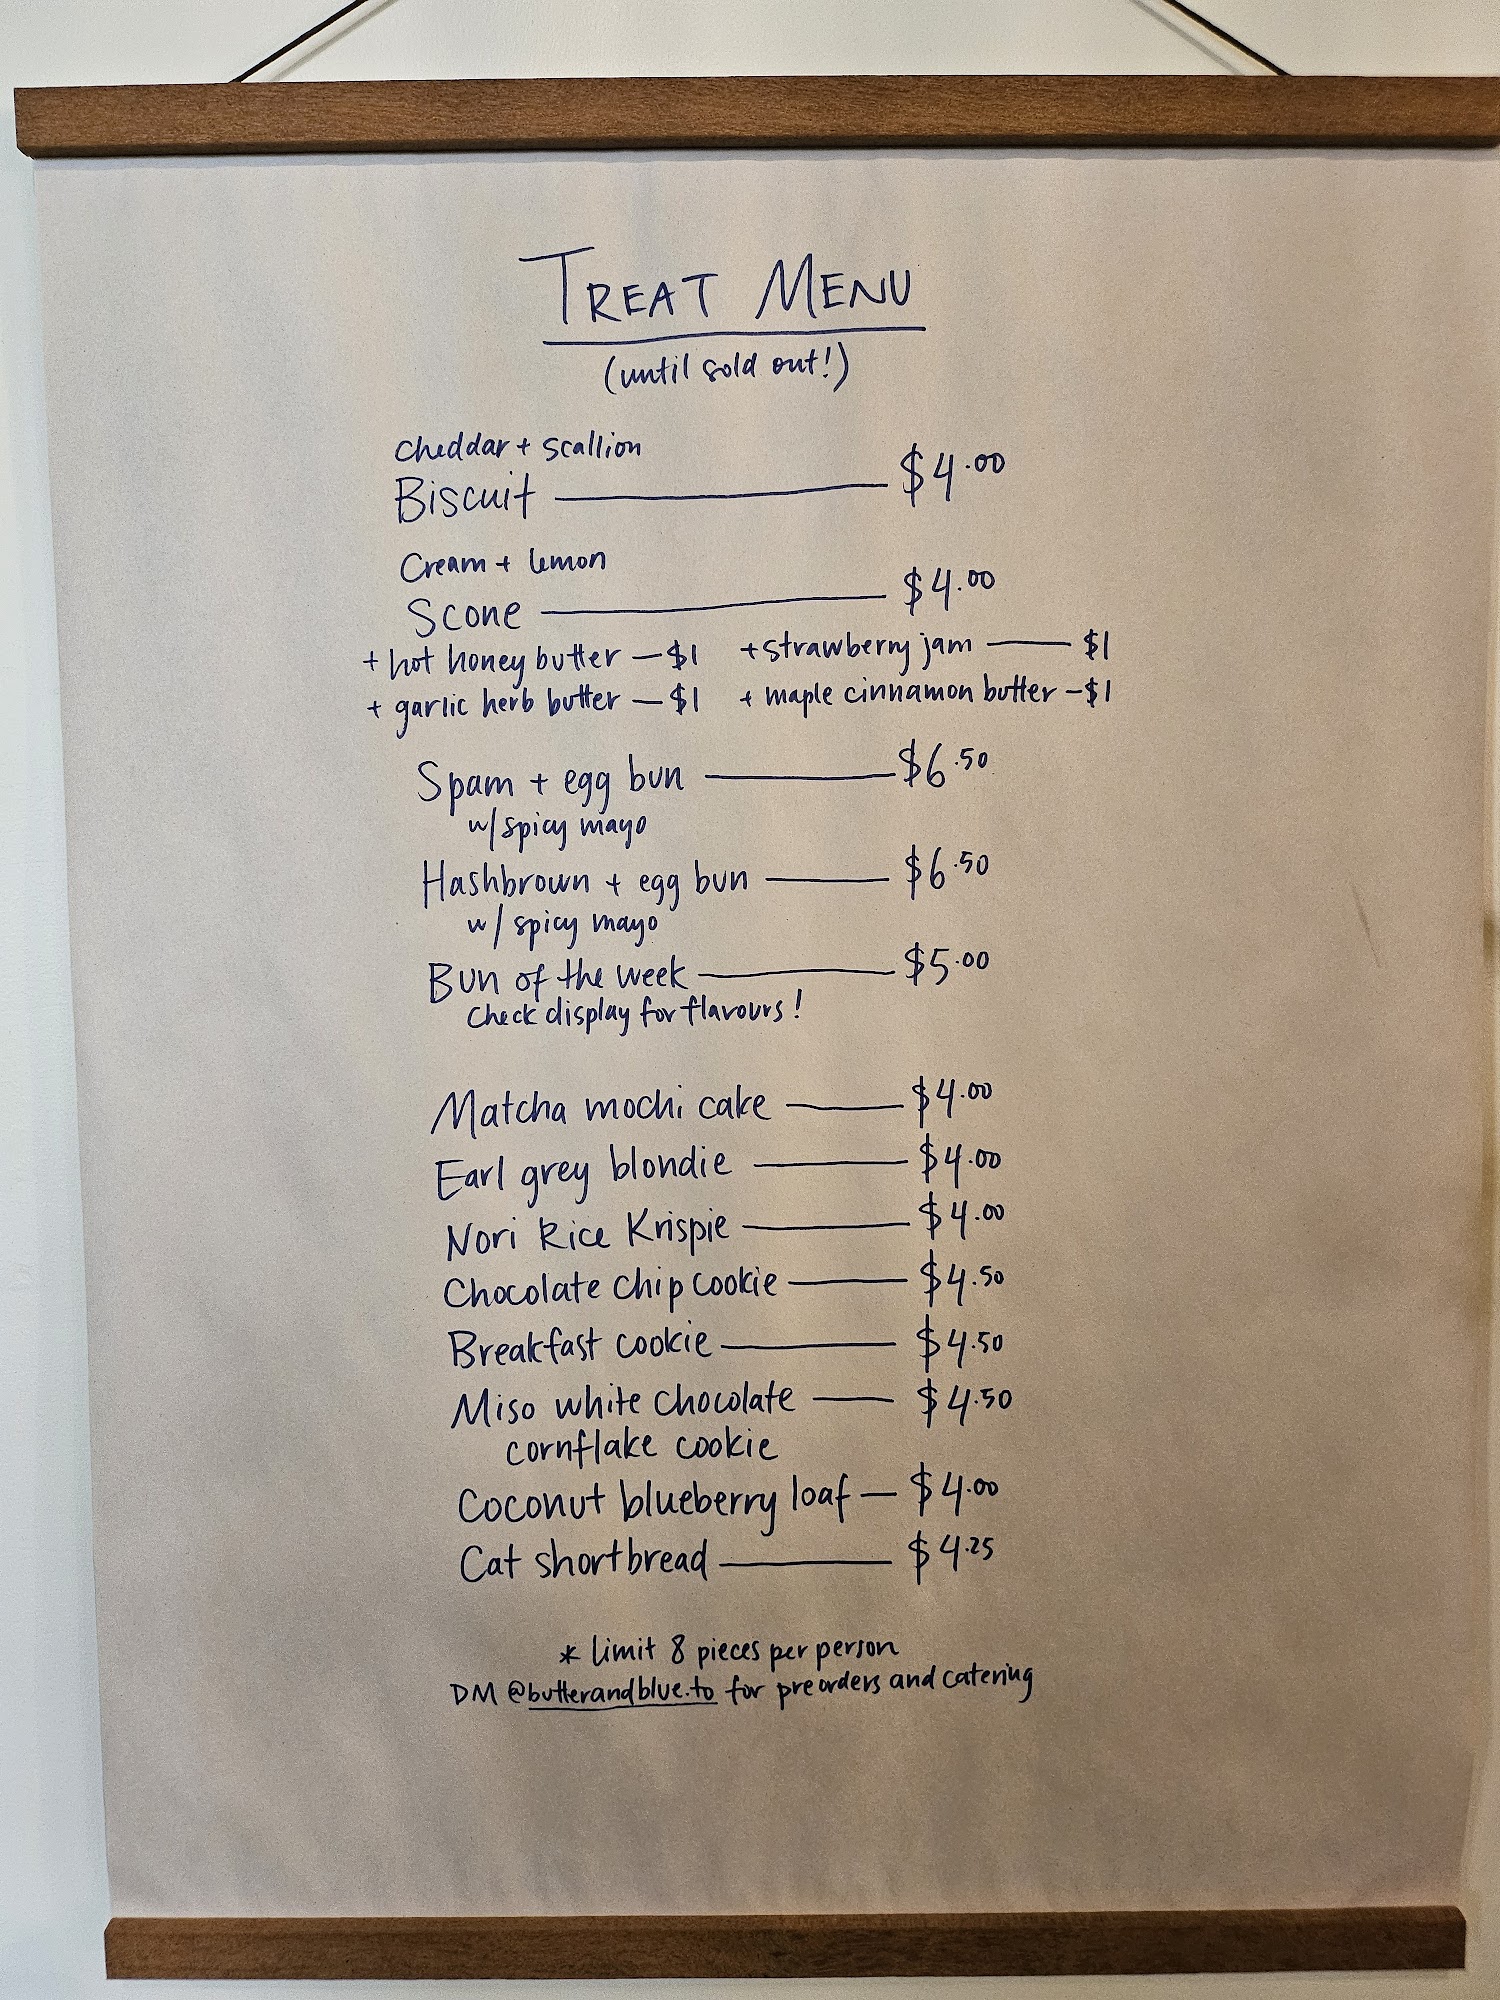 TREAT MENU
(until sold out!)
Cheddar + scallion
Biscuit — $4.00
Cream + lemon
Scone — $4.00
+ hot honey butter — $1 + strawberry jam — $1
+ garlic herb butter — $1 + maple cinnamon butter — $1
Spam + egg bun — $6.50
w/ spicy mayo
Hashbrown + egg bun — $6.50
w/ spicy mayo
Bun of the week — $5.00
Check display for flavours!
Matcha mochi cake — $4.00
Earl grey blondie — $4.00
Nori Rice Krispie — $4.00
Chocolate chip cookie — $4.50
Breakfast cookie — $4.50
Miso white chocolate — $4.50
cornflake cookie
Coconut blueberry loaf — $4.00
Cat shortbread — $4.25
* limit 8 pieces per person
DM @butterandblue.to for preorders and catering